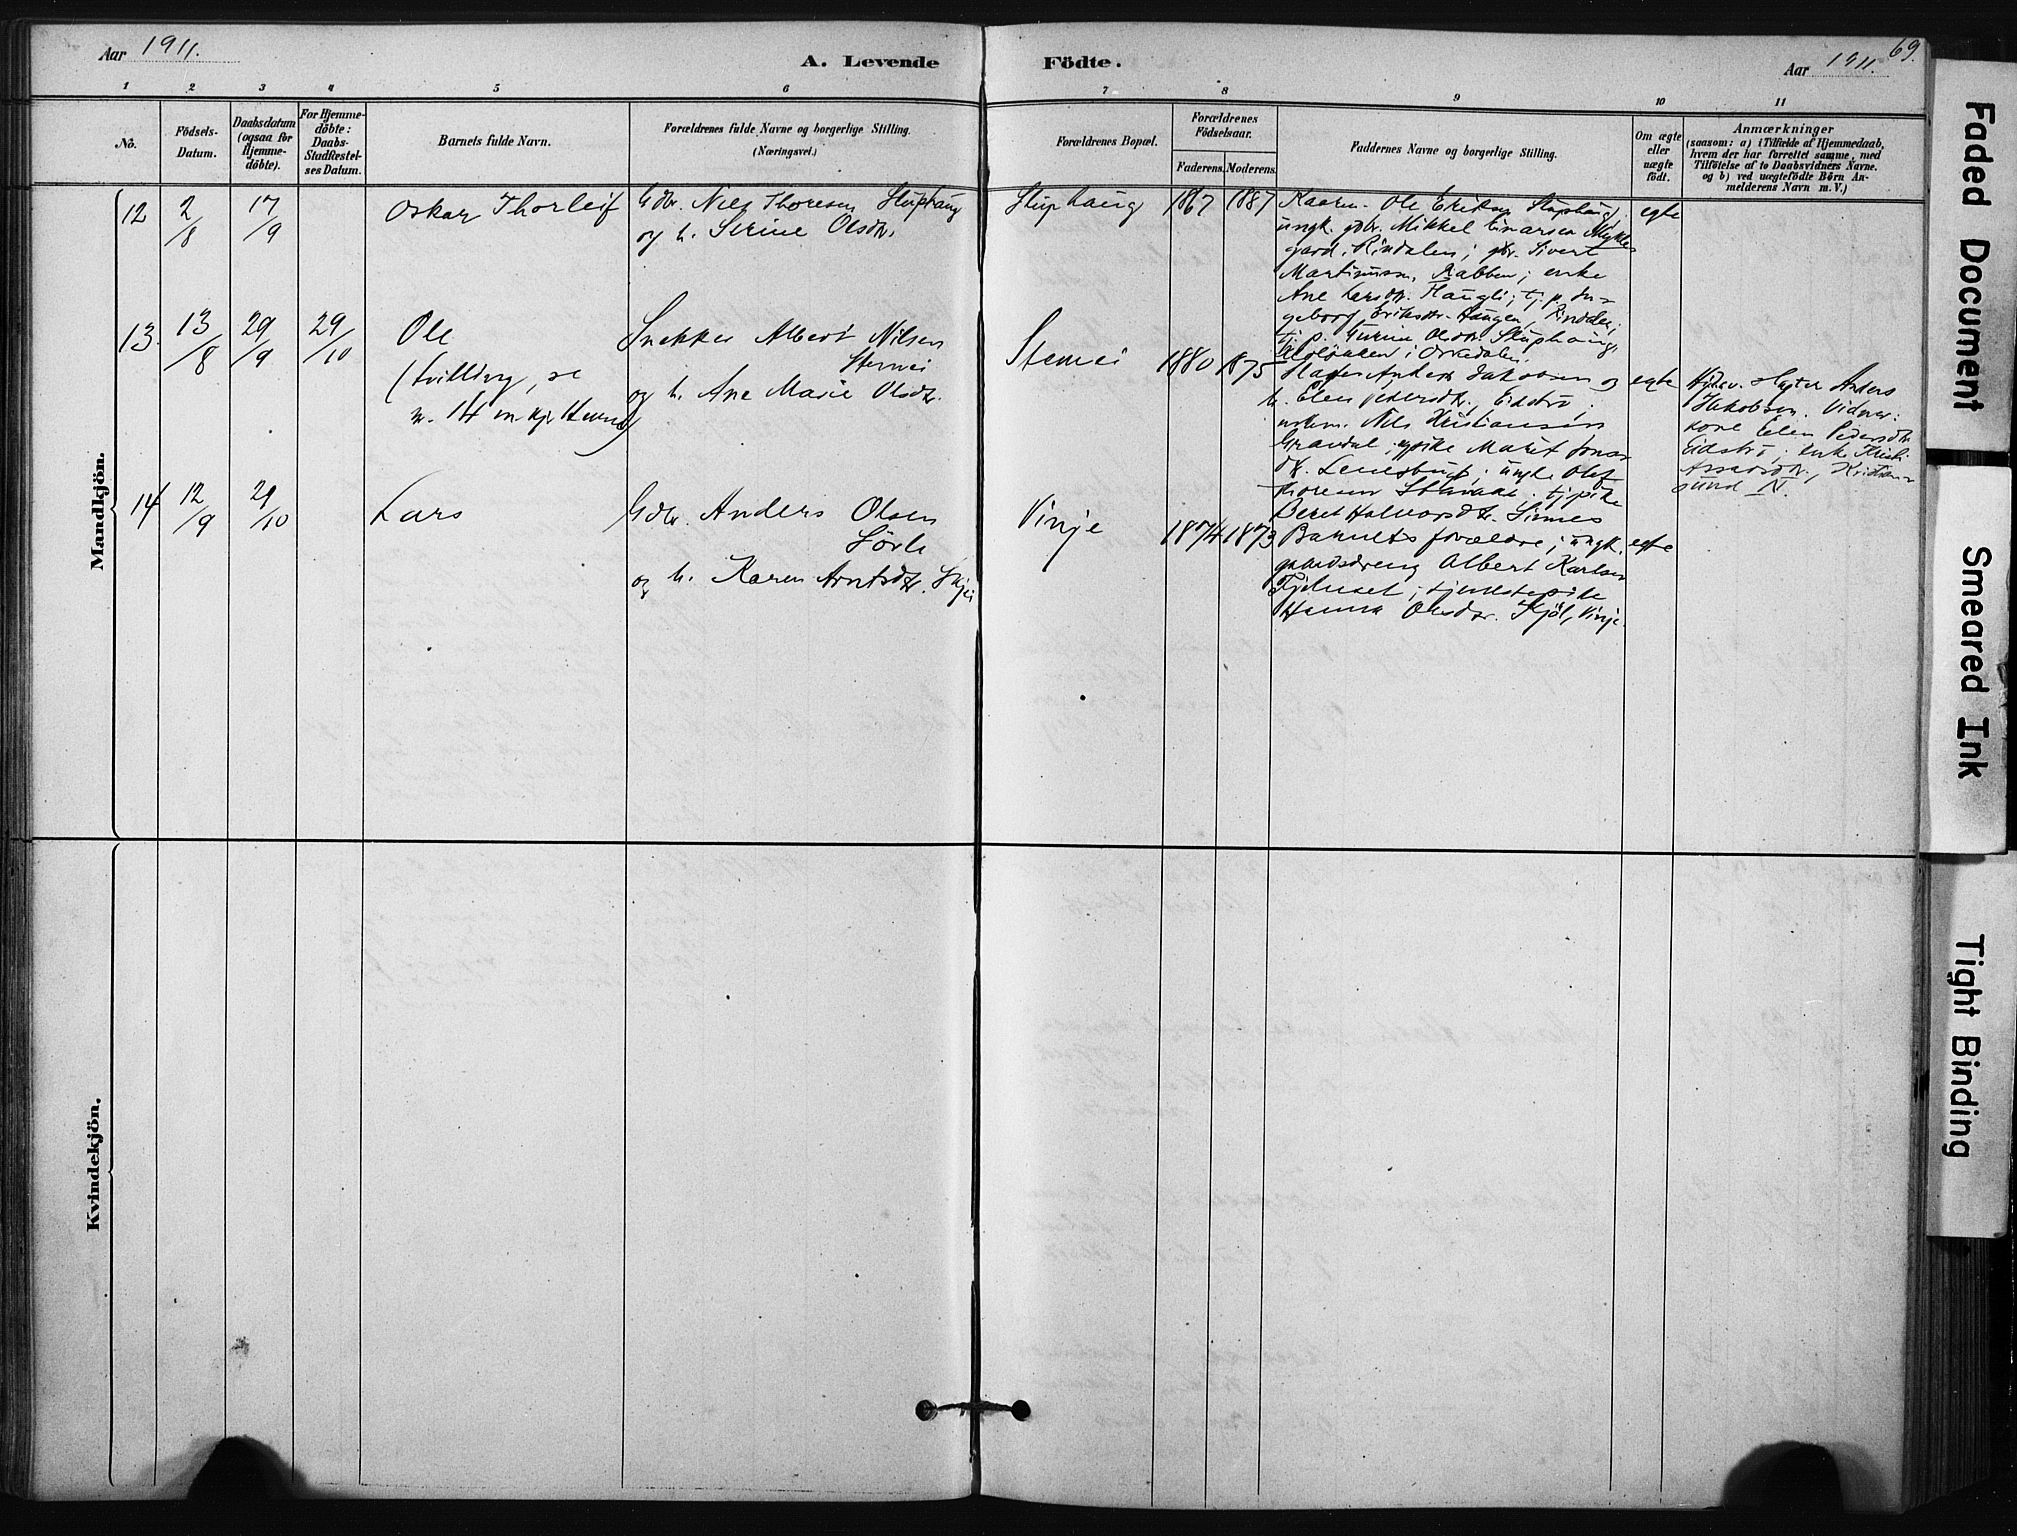 Aar 1911.
A. Levende
Födte.
Aar 1911.
69.
1 2 3 4 5 6 7 8 9 10 11
No.
Födsels-
Datum.
Daabsdatum
(ogsaa for
Hjemme-
döbte).
For Hjemme-
döbte:
Daabs-
Stadfæstel-
ses Datum.
Barnets fulde Navn.
Forældrenes fulde Navne og borgerlige Stilling.
(Næringsvei.)
Forældrenes Bopæl.
Forældrenes
Födselsaar.
Faderens. Moderens.
Faddernes Navne og borgerlige Stilling.
Om ægte
eller
uægte
födt.
Anmærkninger
(saasom: a) i Tilfælde af Hjemmedaab,
hvem der har forrettet samme, med
Tilföielse af to Daabsvidners Navne.
og b) ved uægtefödte Börn An-
melderens Navn m. V.)
Mandkjön.
12
2/8
17/9
Oskar Thorleif
Gdbr. Niels Thoresen Stuphaug
og h. Serine Olsdtr.
Stuphaug
1867
1887
Kaarm. Ole Eriksen Stuphaug;
ungk. gdbr. Mikkel Einarsen Mykle
gard, Rindalen; gbr. Sivert
Martinussen, Rabben; enke
Ane Larsdtr. Haugli; tj. p. In-
geborg Eriksdtr. Haugen, Rindalen;
tj. p. Gurine Olsdtr. Stuphaug,
i Orkedalen.
egte
13.
13/8
29/9
29/10
Ole
(tvilling, se
n. 14 m kjr Hevne)
Snekker Albert Nilsen
Stemei
og h. Ane Marie Olsdtr.
Stemei
1880
1875
Anders Jakobsen og
h. Elen Pedersdtr., Eidstrø;
Nils Kristiansen
Maret Jonas
dtr. ungk. Olof
Thoresen tj. pike
Beret Halvorsdtr. Sinnes
egte
Hjdv. Anders
Jakobsen. Vidner:
kone Elen Pedersdtr.
Eidstrø; enke Kristi
Assarsdtr., Kristian-
sund N.
14
12/9
29/10
Lars
Gdbr. Anders Olsen
Sörli
og h. Karen Arntsdtr. Skjei
Vinje
1874
1873
Barnets forældre; ungk.
gaardsdreng Albert Karlsen
Fjelnset; tjenestepike
Hanna Olsdtr. Kjöl, Vinje.
egte
Kvindekjön.
Faded Document
Smeared Ink
Tight Binding